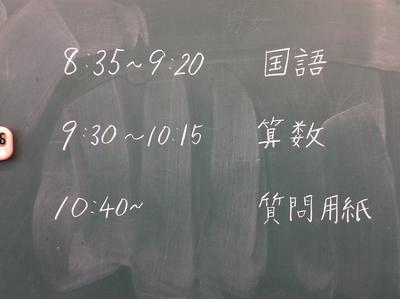 8:35~9:20 国語
9:30~10:15 算数
10:40~ 質問用紙